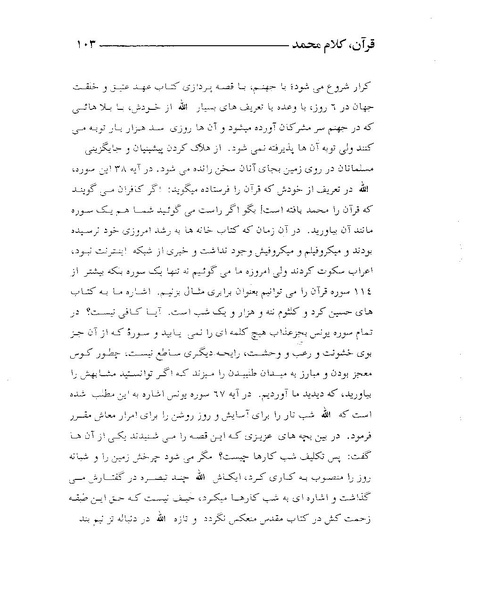 قرآن، کلام محمد ۱۰۳
کرار شروع می شود؛ با جهنم، با قصه پردازی کتاب عهد عتیق و خلقت
جهان در ۶ روز، با وعده یا تعریف های بسیار الله از خودش، با بلا هائی
که در جهنم سر مشرکان آورده میشود و آن ها روزی سد هزار بار توبه می
کنند ولی توبه آن ها پذیرفته نمی شود. از هلاک کردن پیشینیان و جایگزینی
مسلمانان در روی زمین بجای آنان سخن رانده می شود. در آیه ۳۸ این سوره،
الله در تعریف از خودش که قرآن را فرستاده میگوید: اگر کافران می گویند
که قرآن را محمد بافته است] بگو اگر راست می گوئید شما هم یک سوره
مانند آن بیاورید. در آن زمان که کتاب خانه ها به رشد امروزی خود نرسیده
بودند و میکروفیلم و میکروفیش وجود نداشت و خبری از شبکه اینترنت نبود،
اعراب سکوت کردند ولی امروزه ما می گوئیم نه تنها یک سوره بلکه بیشتر از
۱۱۴ سوره قرآن را می توانیم بعنوان برابری مثال بزنیم. اشاره ما به کتاب
های حسین کرد و کلثوم ننه و هزار و یک شب است. آیا کافی نیست؟ در
تمام سوره یونس بجزعذاب هیچ کلمه ای را نمی یابید و سورهٔ که از آن جز
بوی خشونت و رعب و وحشت، رایحه دیگری ساطع نیست، چطور کوس
معجز بودن و مبارز به میدان طلبیدن را میزند که اگر توانستید مشابهش را
بیاورید، که دیدید ما آوردیم. در آیه ۶۷ سوره یونس اشاره به این مطلب شده
است که الله شب تار را برای آسایش و روز روشن را برای امرار معاش مقرر
فرمود. در بین بچه های عزیزی که این قصه را می شنیدند یکی از آن ها
گفت: پس تکلیف شب کارها چیست؟ مگر می شود چرخش زمین را و شبانه
روز را منصوب به کاری کرد، ایکاش الله چند تبصره در گفتارش می
گذاشت و اشاره ای به شب کارها میکرد، حیف نیست که حق این طبقه
زحمت کش در کتاب مقدس منعکس نگردد و تازه الله در دنباله بند